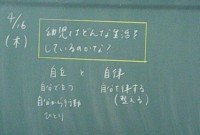 4/16
(木)
幼児はどんな生活を
しているのかな?
自立 と 自律
自分で立つ 自分を律する
自分から行動 (整える)
ひとり